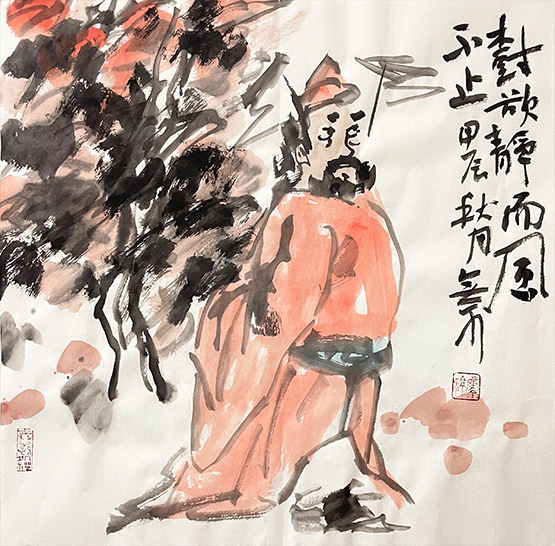 樹欲靜而風
不止 甲辰秋月